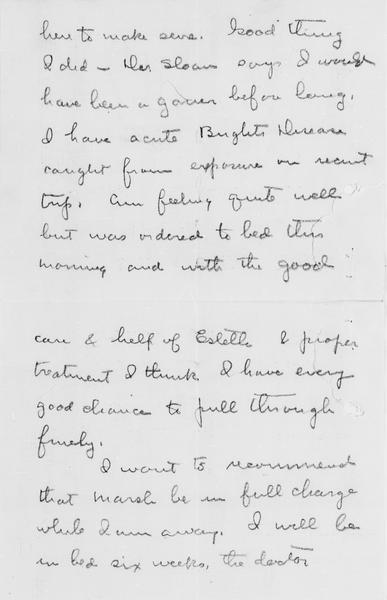 here to make sure. Good thing
I did – Dr Sloan says I would
have been a goner before long.
I have acute Brights Disease
caught from exposure on recent
trip. Am feeling quite well
but was ordered to bed this
morning and with the good
care & help of Estelle & proper
treatment I think I have every
good chance to pull through
finely.
I want to recommend
that Marsh be in full charge
while I am away. I will be
in bed six weeks, the doctor